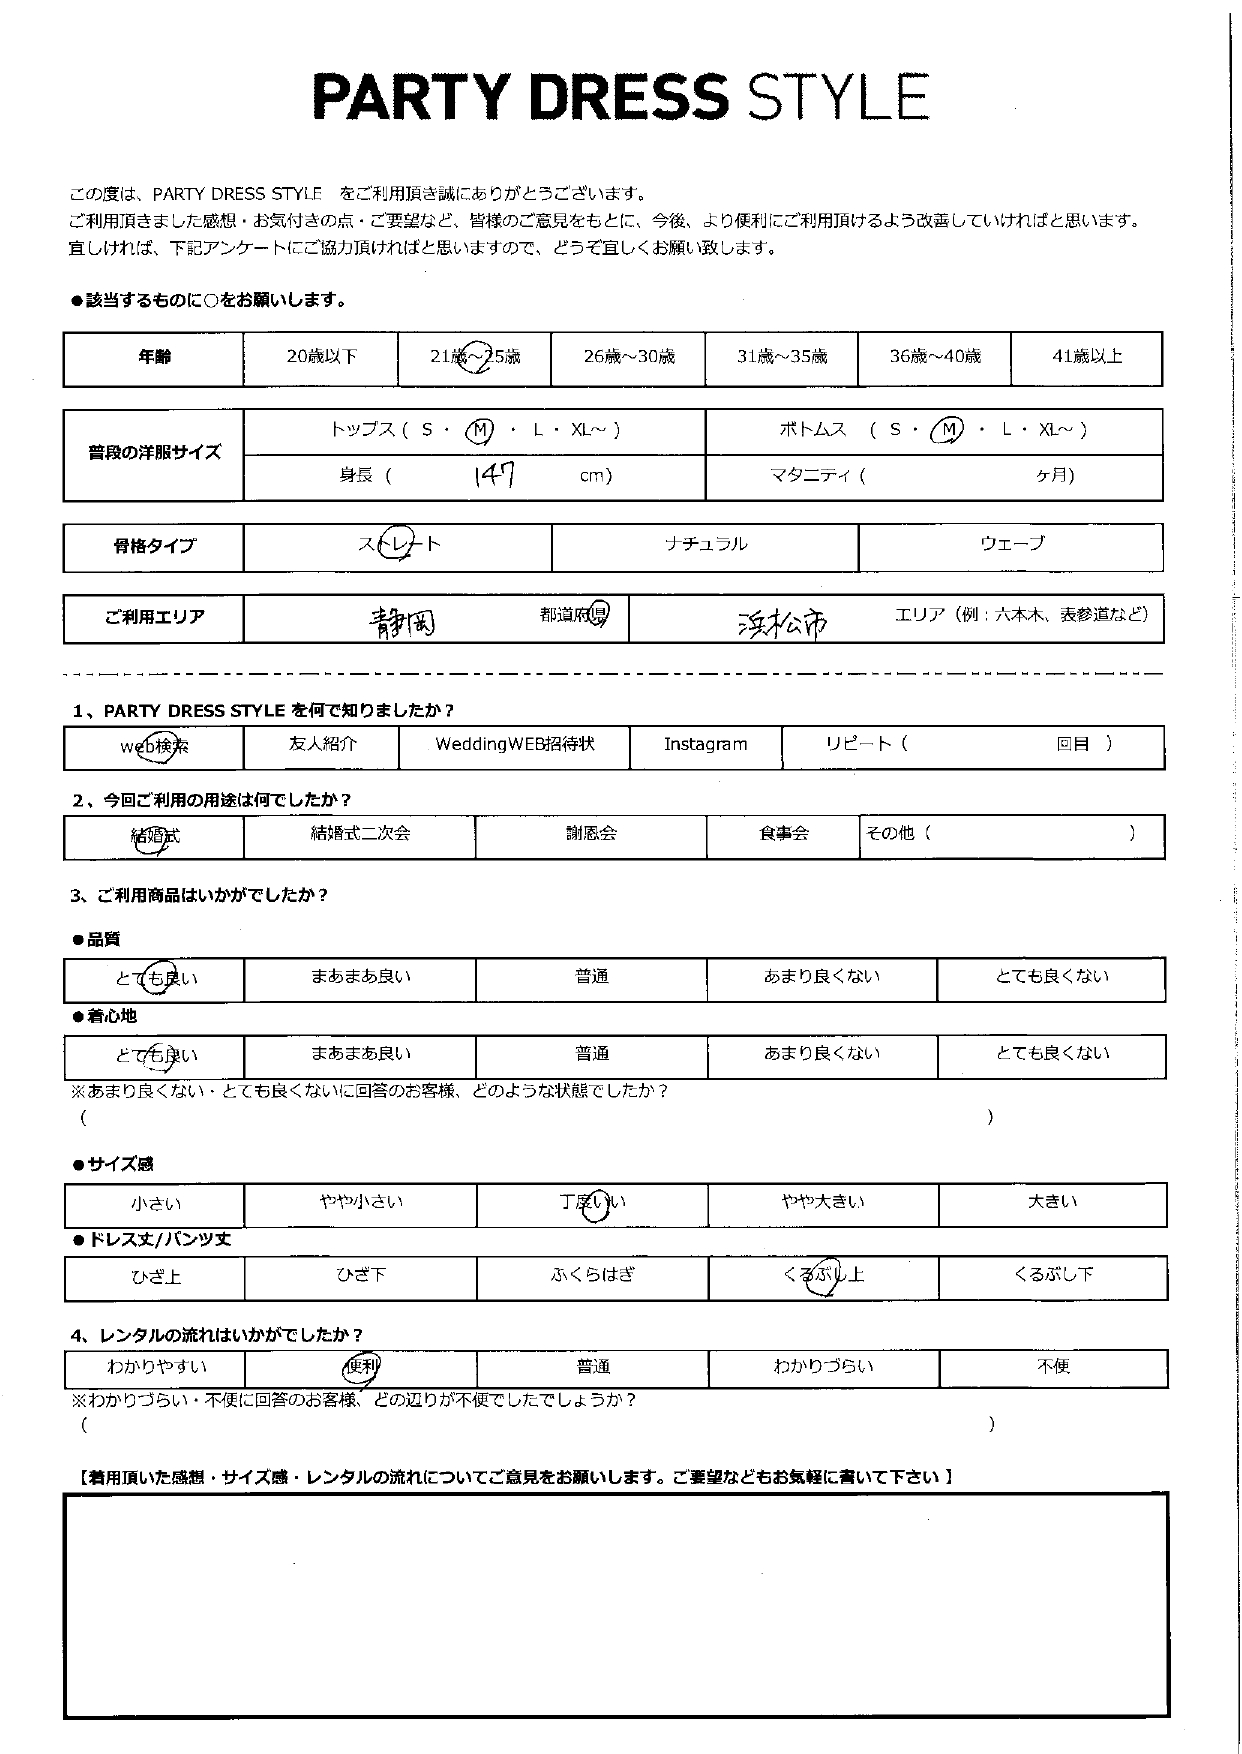 PARTY DRESS STYLE
この度は、PARTY DRESS STYLE をご利用頂き誠にありがとうございます。
ご利用頂きました感想・お気付きの点・ご要望など、皆様のご意見をもとに、今後、より便利にご利用頂けるよう改善していければと思います。
宜しければ、下記アンケートにご協力頂ければと思いますので、どうぞ宜しくお願い致します。
●該当するものに○をお願いします。
年齢 20歳以下 21歳～25歳 26歳～30歳 31歳～35歳 36歳～40歳 41歳以上
普段の洋服サイズ トップス ( S ・ M ・ L ・ XL～ ) ボトムス ( S ・ M ・ L ・ XL～ )
身長 ( 147 cm) マタニティ ( ヶ月)
骨格タイプ ストレート ナチュラル ウェーブ
ご利用エリア 静岡 都道府県 浜松市 エリア（例：六本木、表参道など）
1、PARTY DRESS STYLE を何で知りましたか？
web検索 友人紹介 WeddingWEB招待状 Instagram リピート ( 回目 )
2、今回ご利用の用途は何でしたか？
結婚式 結婚式二次会 謝恩会 食事会 その他 ( )
3、ご利用商品はいかがでしたか？
●品質
とても良い まあまあ良い 普通 あまり良くない とても良くない
●着心地
とても良い まあまあ良い 普通 あまり良くない とても良くない
※あまり良くない・とても良くないに回答のお客様、どのような状態でしたか？
( )
●サイズ感
小さい やや小さい 丁度いい やや大きい 大きい
●ドレス丈/パンツ丈
ひざ上 ひざ下 ふくらはぎ くるぶし上 くるぶし下
4、レンタルの流れはいかがでしたか？
わかりやすい 便利 普通 わかりづらい 不便
※わかりづらい・不便に回答のお客様、どの辺りが不便でしたでしょうか？
( )
【着用頂いた感想・サイズ感・レンタルの流れについてご意見をお願いします。ご要望などもお気軽に書いて下さい 】